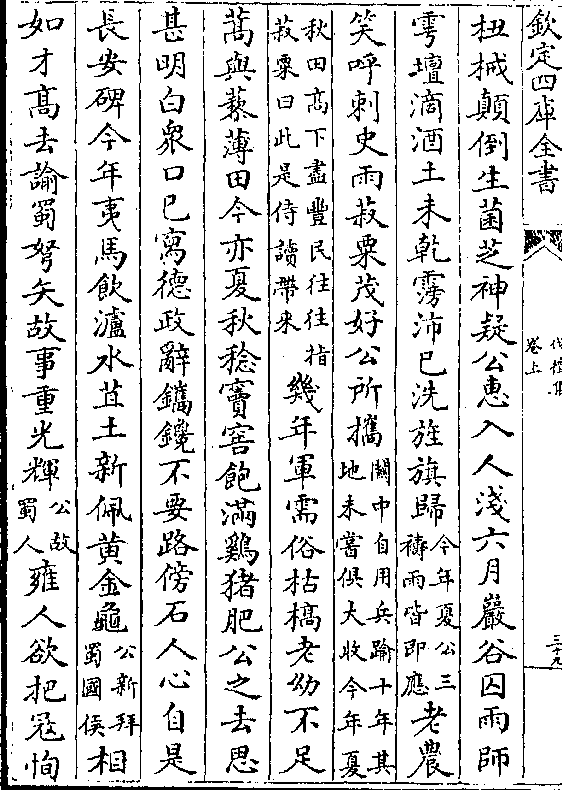 欽定四庫全書
卷上
三十九
杻械顛倒生菌芝神疑公惠入人淺六月巖谷囚雨師
雩壇滴酒土未乾霶沛已洗旌旗歸今年夏公三禱雨皆即應老農
笑呼刺史雨菽粟茂好公所攜關中自用兵踰十年其地未嘗俱大收今年夏
秋田髙下盡豐民往往指菽粟曰此是侍讀帶來幾年軍需俗枯槁老幼不足
蒿與藜薄田今亦夏秋稔竇窖飽滿鷄猪肥公之去思
甚明白衆口已寓德政辭鐫鑱不要路傍石人心自是
長安碑今年夷馬飲瀘水苴土新佩黄金龜公新拜蜀國侯相
如才髙去諭蜀弩矢故事重光輝公故蜀人雍人欲把冦恂